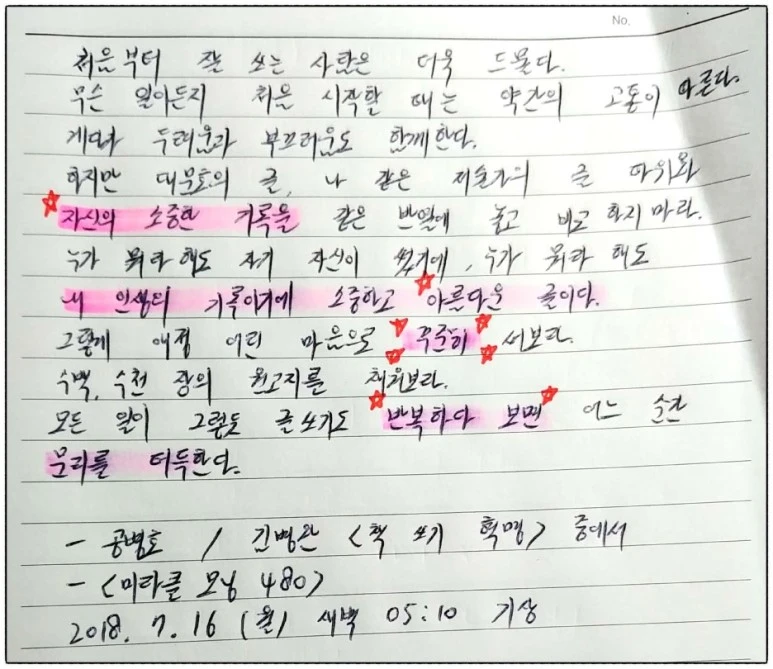 No.
처음부터 잘 쓰는 사람은 더욱 드물다.
무슨 일이든지 처음 시작할 때는 약간의 고통이 따른다.
게다가 두려움과 부끄러움도 함께한다.
하지만 대문호의 글, 나 같은 저술가의 글 따위와
자신의 소중한 기록을 같은 반열에 놓고 비교하지 마라.
누가 뭐라 해도 자기 자신이 썼기에, 누가 뭐라 해도
내 인생의 기록이기에 소중하고 아름다운 글이다.
그렇게 애정 어린 마음으로 꾸준히 써보라.
수백, 수천 장의 원고지를 채워보라.
모든 일이 그렇듯 글쓰기도 반복하다 보면 어느 순간
문리를 터득한다.
- 공병호 / 김병완 <책 쓰기 혁명> 중에서
- <미라클 모닝 480>
2018. 7. 16 (월) 새벽 05:10 기상